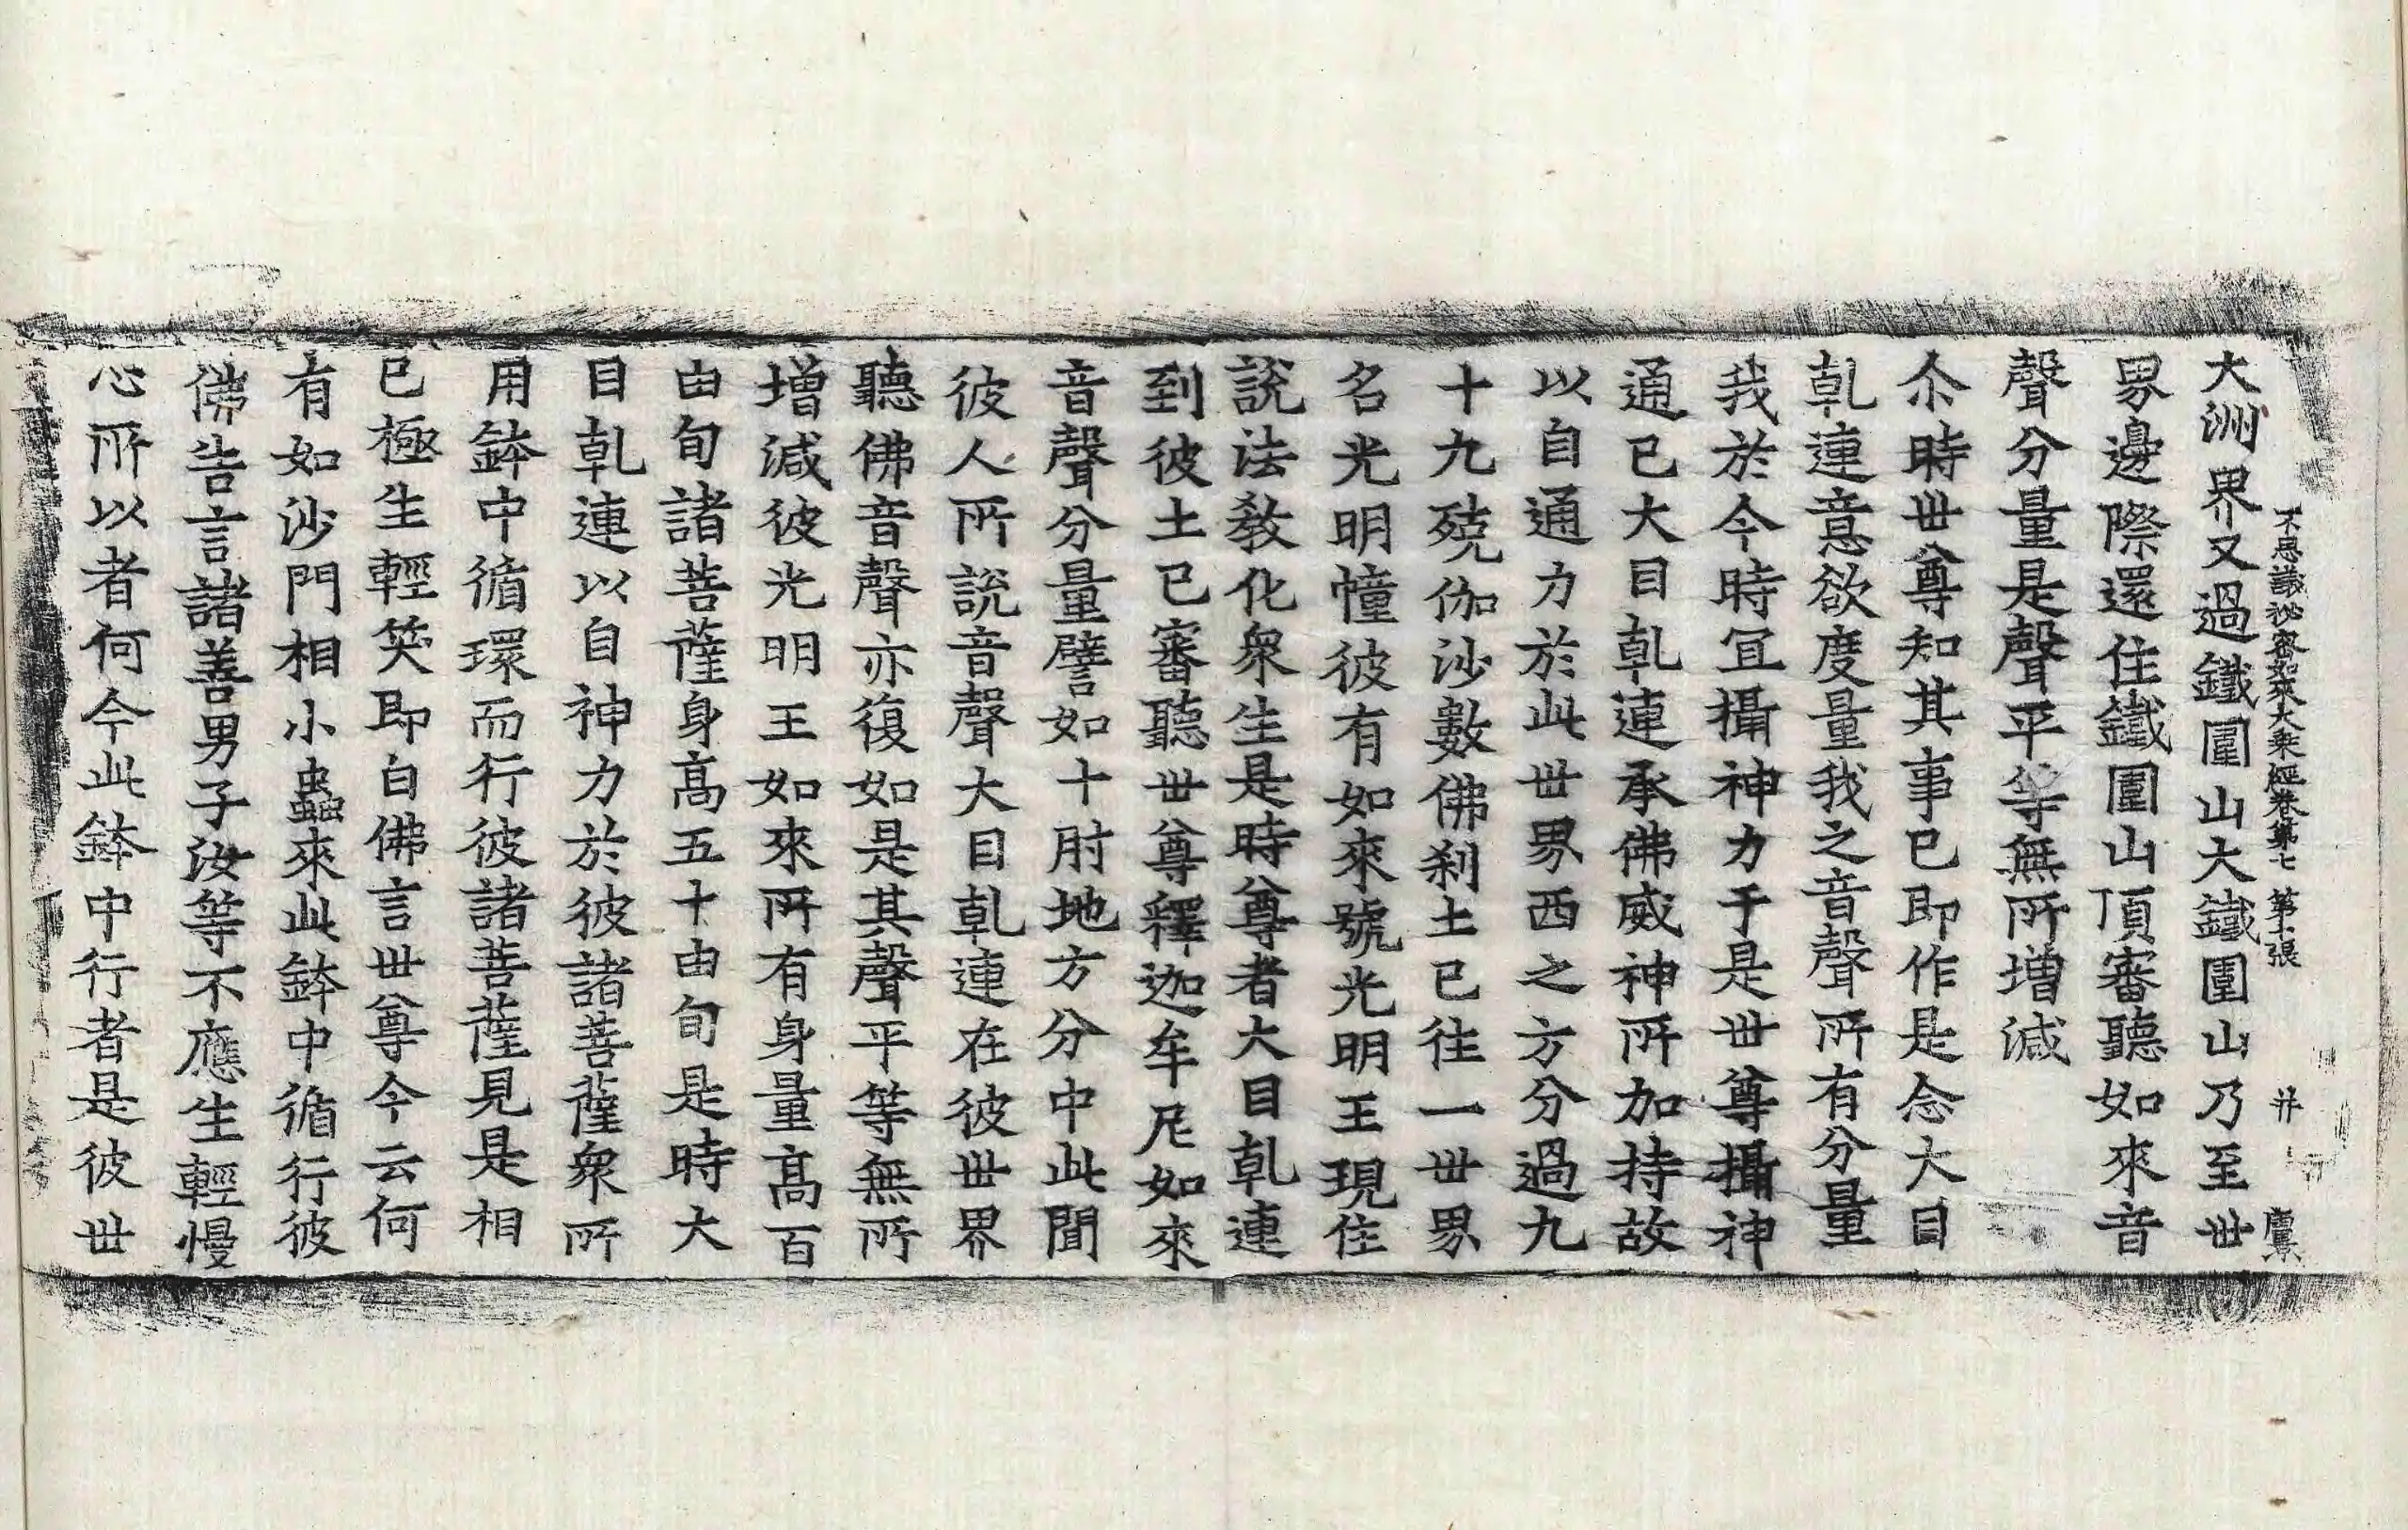 大洲界又過鐵圍山大鐵圍山乃至世
不思議祕密如來大乘經卷第七 第十張 井
界邊際還住鐵圍山頂審聽如來音
聲分量是聲平等無所增減
尒時世尊知其事已即作是念大目
乹連意欲度量我之音聲所有分量
我於今時冝攝神力于是世尊攝神
通已大目乹連承佛威神所加持故
以自通力於此世界西之方分過九
十九殑伽沙數佛刹土已往一世界
名光明幢彼有如來號光明王現住
說法教化衆生是時尊者大目乹連
到彼土已審聽世尊釋迦牟尼如來
音聲分量譬如十肘地方分中此聞
彼人所說音聲大目乹連在彼世界
聽佛音聲亦復如是其聲平等無所
增減彼光明王如來所有身量高百
由旬諸菩薩身高五十由旬是時大
目乹連以自神力於彼諸菩薩衆所
用鉢中循環而行彼諸菩薩見是相
已極生輕笑即白佛言世尊今云何
有如沙門相小蟲來此鉢中循行彼
佛告言諸善男子汝等不應生輕慢
心所以者何今此鉢中行者是彼世